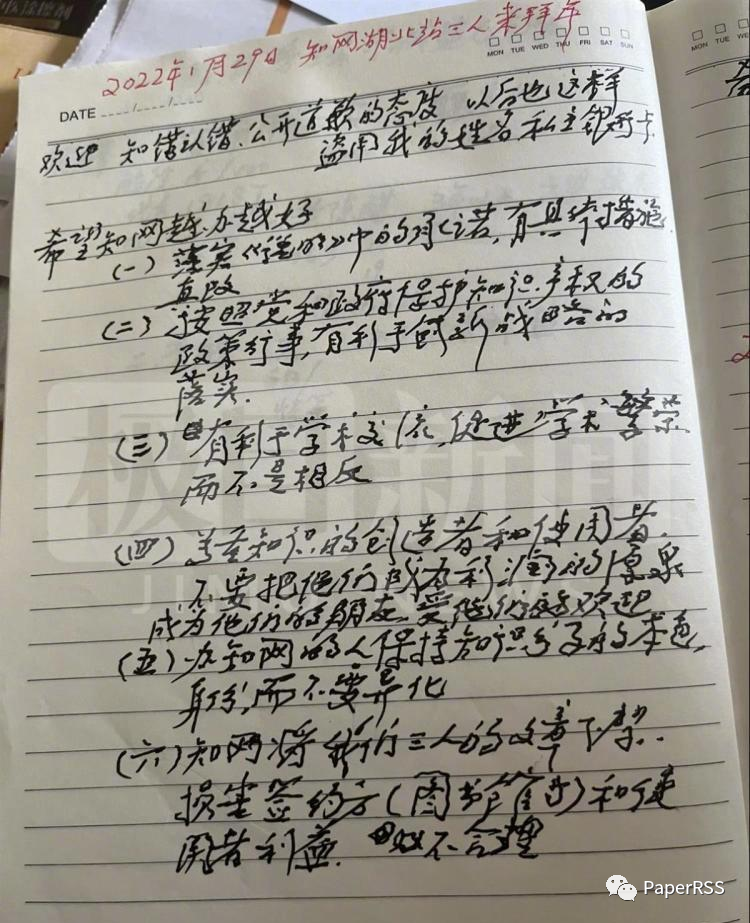 2022年1月29日 知网湖北站三人来拜年
MON TUE WED THU FRI SAT SUN
MON TUE
DATE ..../..../....
欢迎 知错认错、公开道歉的态度 以后也这样
盗用我的姓名、私立银行卡
希望知网越办越好
(一) 落实《说明》中的承诺,有具体措施
直改
(二) 按照党和政府保护知识产权的
政策行事,有利于创新战略的
落实.
(三) 有利于学术交流,促进学术繁荣.
而不是相反
(四) 尊重知识的创造者和使用者.
不要把他们成为利润的源泉
成为他们的朋友,受他们的欢迎
(五) 办知网的人保持知识分子的本色,
身份,而不要异化
(六) 知网将我们三人的文章下架..
损害签约方(图书馆等)和使
用者利益. 不合理
极目新闻
PaperRSS